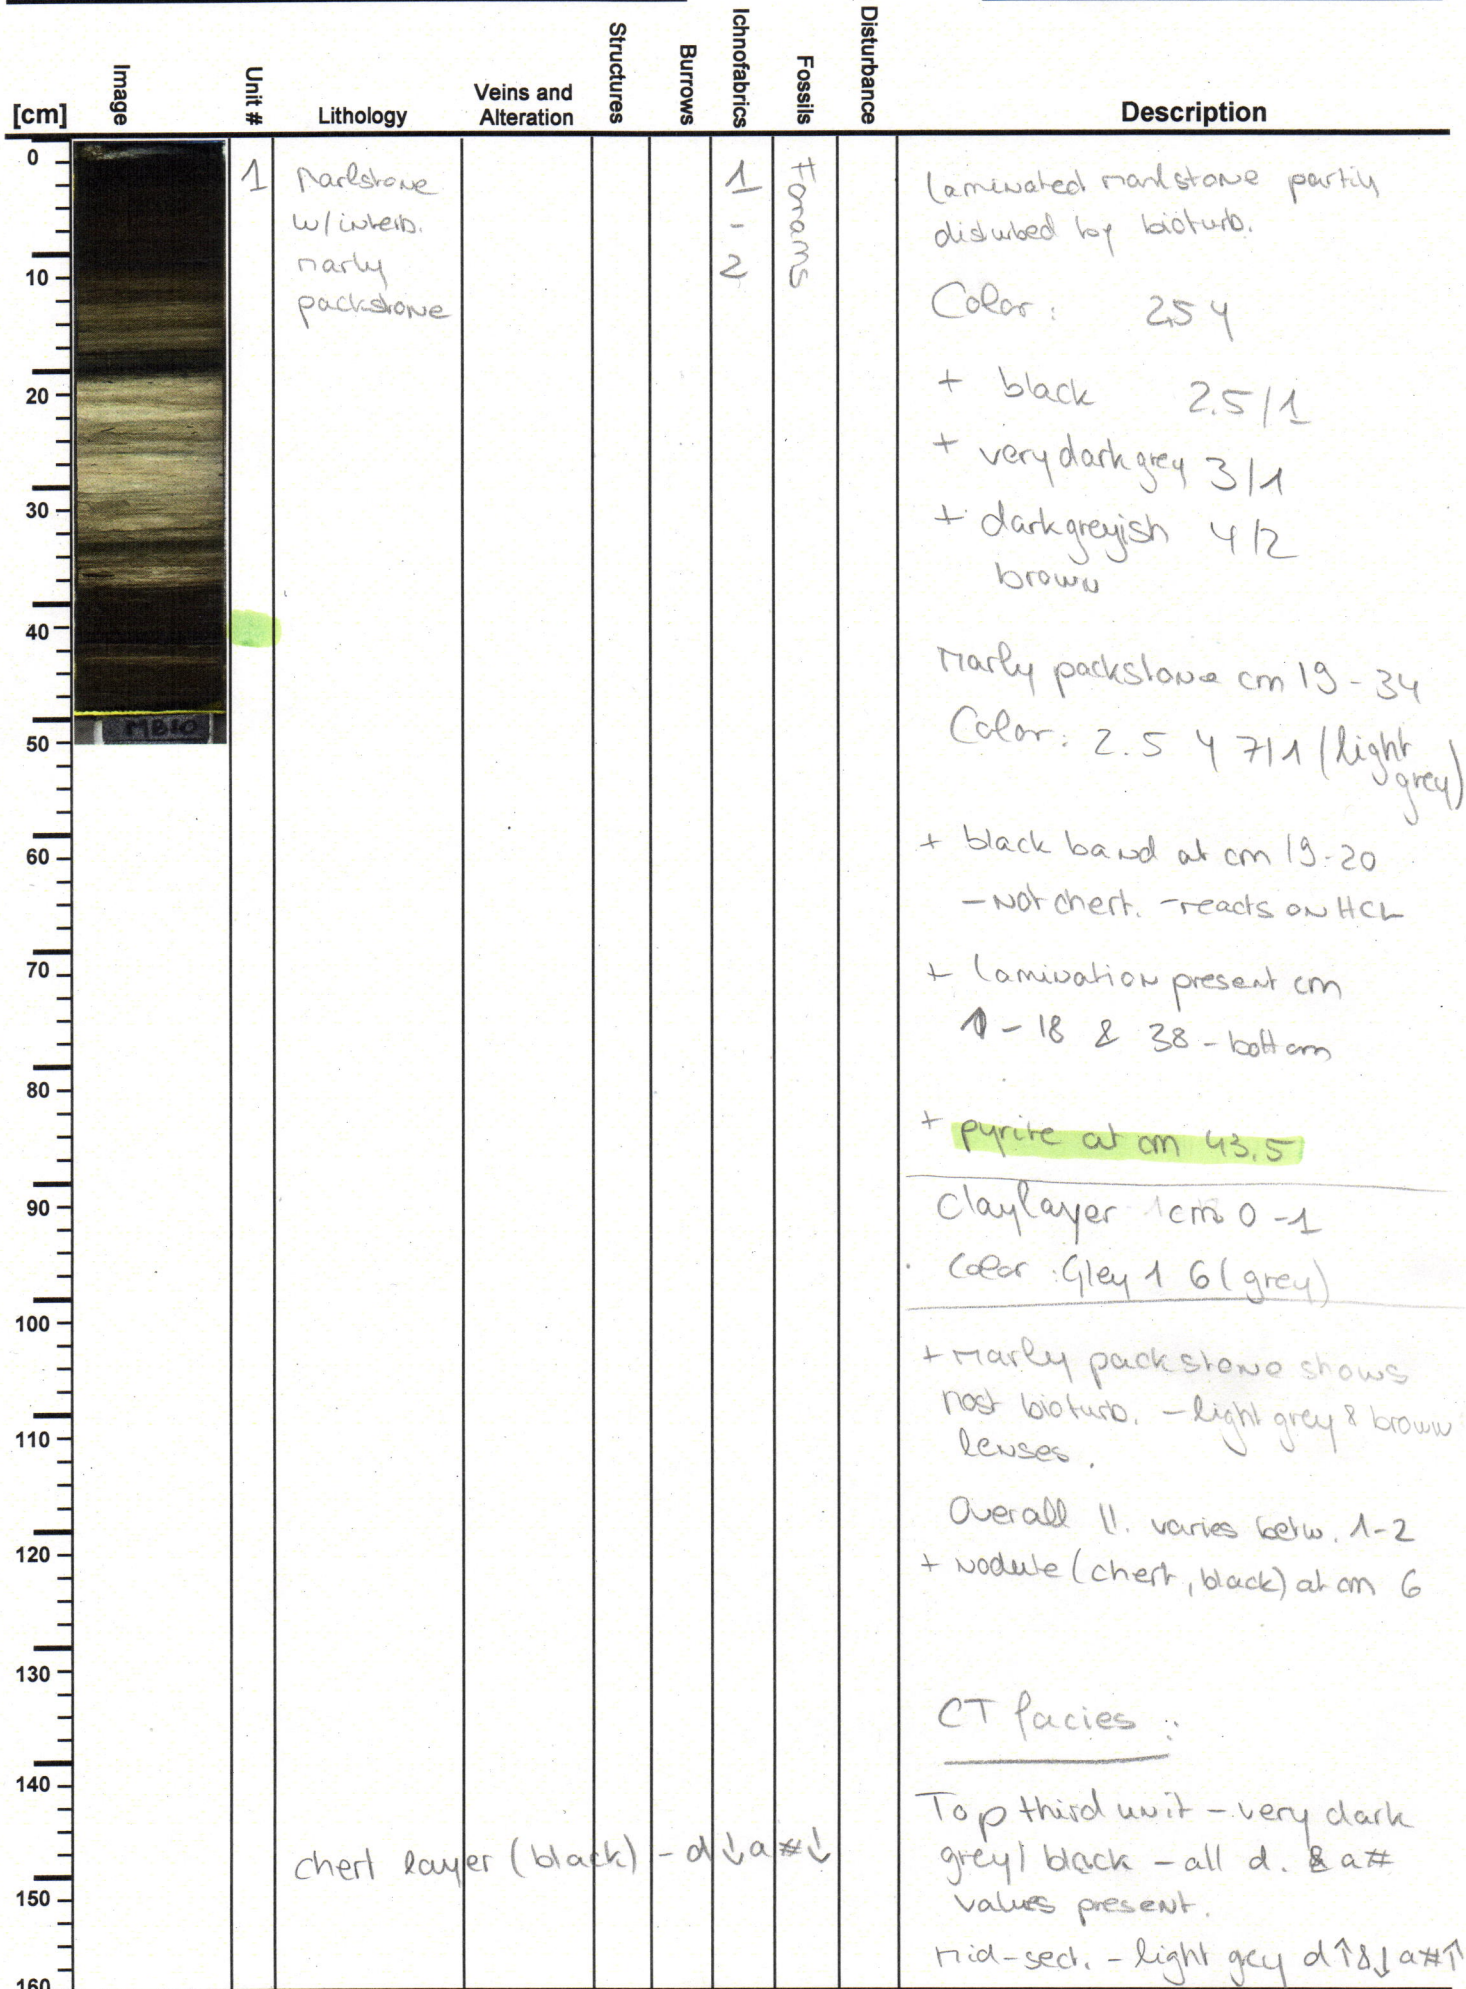 [cm]
Image
Unit #
Lithology
Veins and
Alteration
Structures
Burrows
Ichnofabrics
Fossils
Disturbance
Description
0
10
20
30
40
50
60
70
80
90
100
110
120
130
140
150
160
MB10
1
Marlstone
w/interb.
marly
packstone
1
-
2
Forams
laminated marlstone partly
disturbed by bioturb.
Color: 2.5 Y
+ black 2.5/1
+ very dark grey 3/1
+ dark greyish 4/2
brown
Marly packstone cm 19-34
Color: 2.5 Y 7/1 (light
grey)
+ black band at cm 19-20
- not chert. - reacts on HCL
+ lamination present cm
1-18 & 38-bottom
+ pyrite at cm 43,5
Claylayer cm 0-1
Color: Gley 1 6 (grey)
+ Marly packstone shows
most bioturb. - light grey & brown
lenses.
Overall II. varies betw. 1-2
+ nodule (chert, black) at cm 6
CT facies:
Top third unit - very dark
grey/ black - all d. & a#
values present.
Mid-sect. - light grey d↑&↓ a#↑
chert layer (black) - d↓a#↓